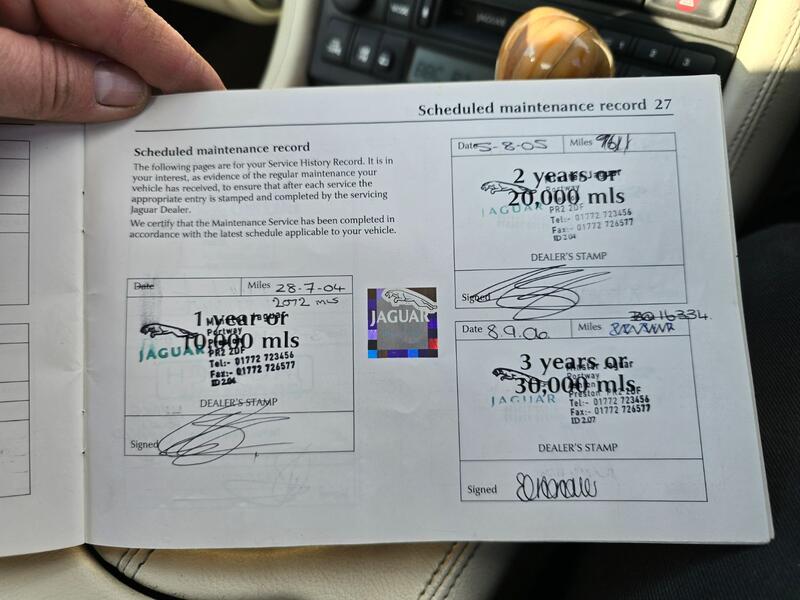 Scheduled maintenance record 27
Scheduled maintenance record
The following pages are for your Service History Record. It is in
your interest, as evidence of the regular maintenance your
vehicle has received, to ensure that after each service the
appropriate entry is stamped and completed by the servicing
Jaguar Dealer.
We certify that the Maintenance Service has been completed in
accordance with the latest schedule applicable to your vehicle.
Date Miles 28-7-04
2072 MLS
1 year or
10,000 mls
Portway
JAGUAR
PR2 2DF
Tel:- 01772 723456
Fax:- 01772 726577
ID 2.04
DEALER'S STAMP
Signed
JAGUAR
Date 5-8-05 Miles 9611
2 years or
20,000 mls
Portway
JAGUAR
PR2 2DF
Tel:- 01772 723456
Fax:- 01772 726577
ID 2.04
DEALER'S STAMP
Signed
Date 8.9.06 Miles 16334.
3 years or
30,000 mls
Jaguar
Portway
JAGUAR
Preston PR2 2DF
Tel:- 01772 723456
Fax:- 01772 726577
ID 2.07
DEALER'S STAMP
Signed